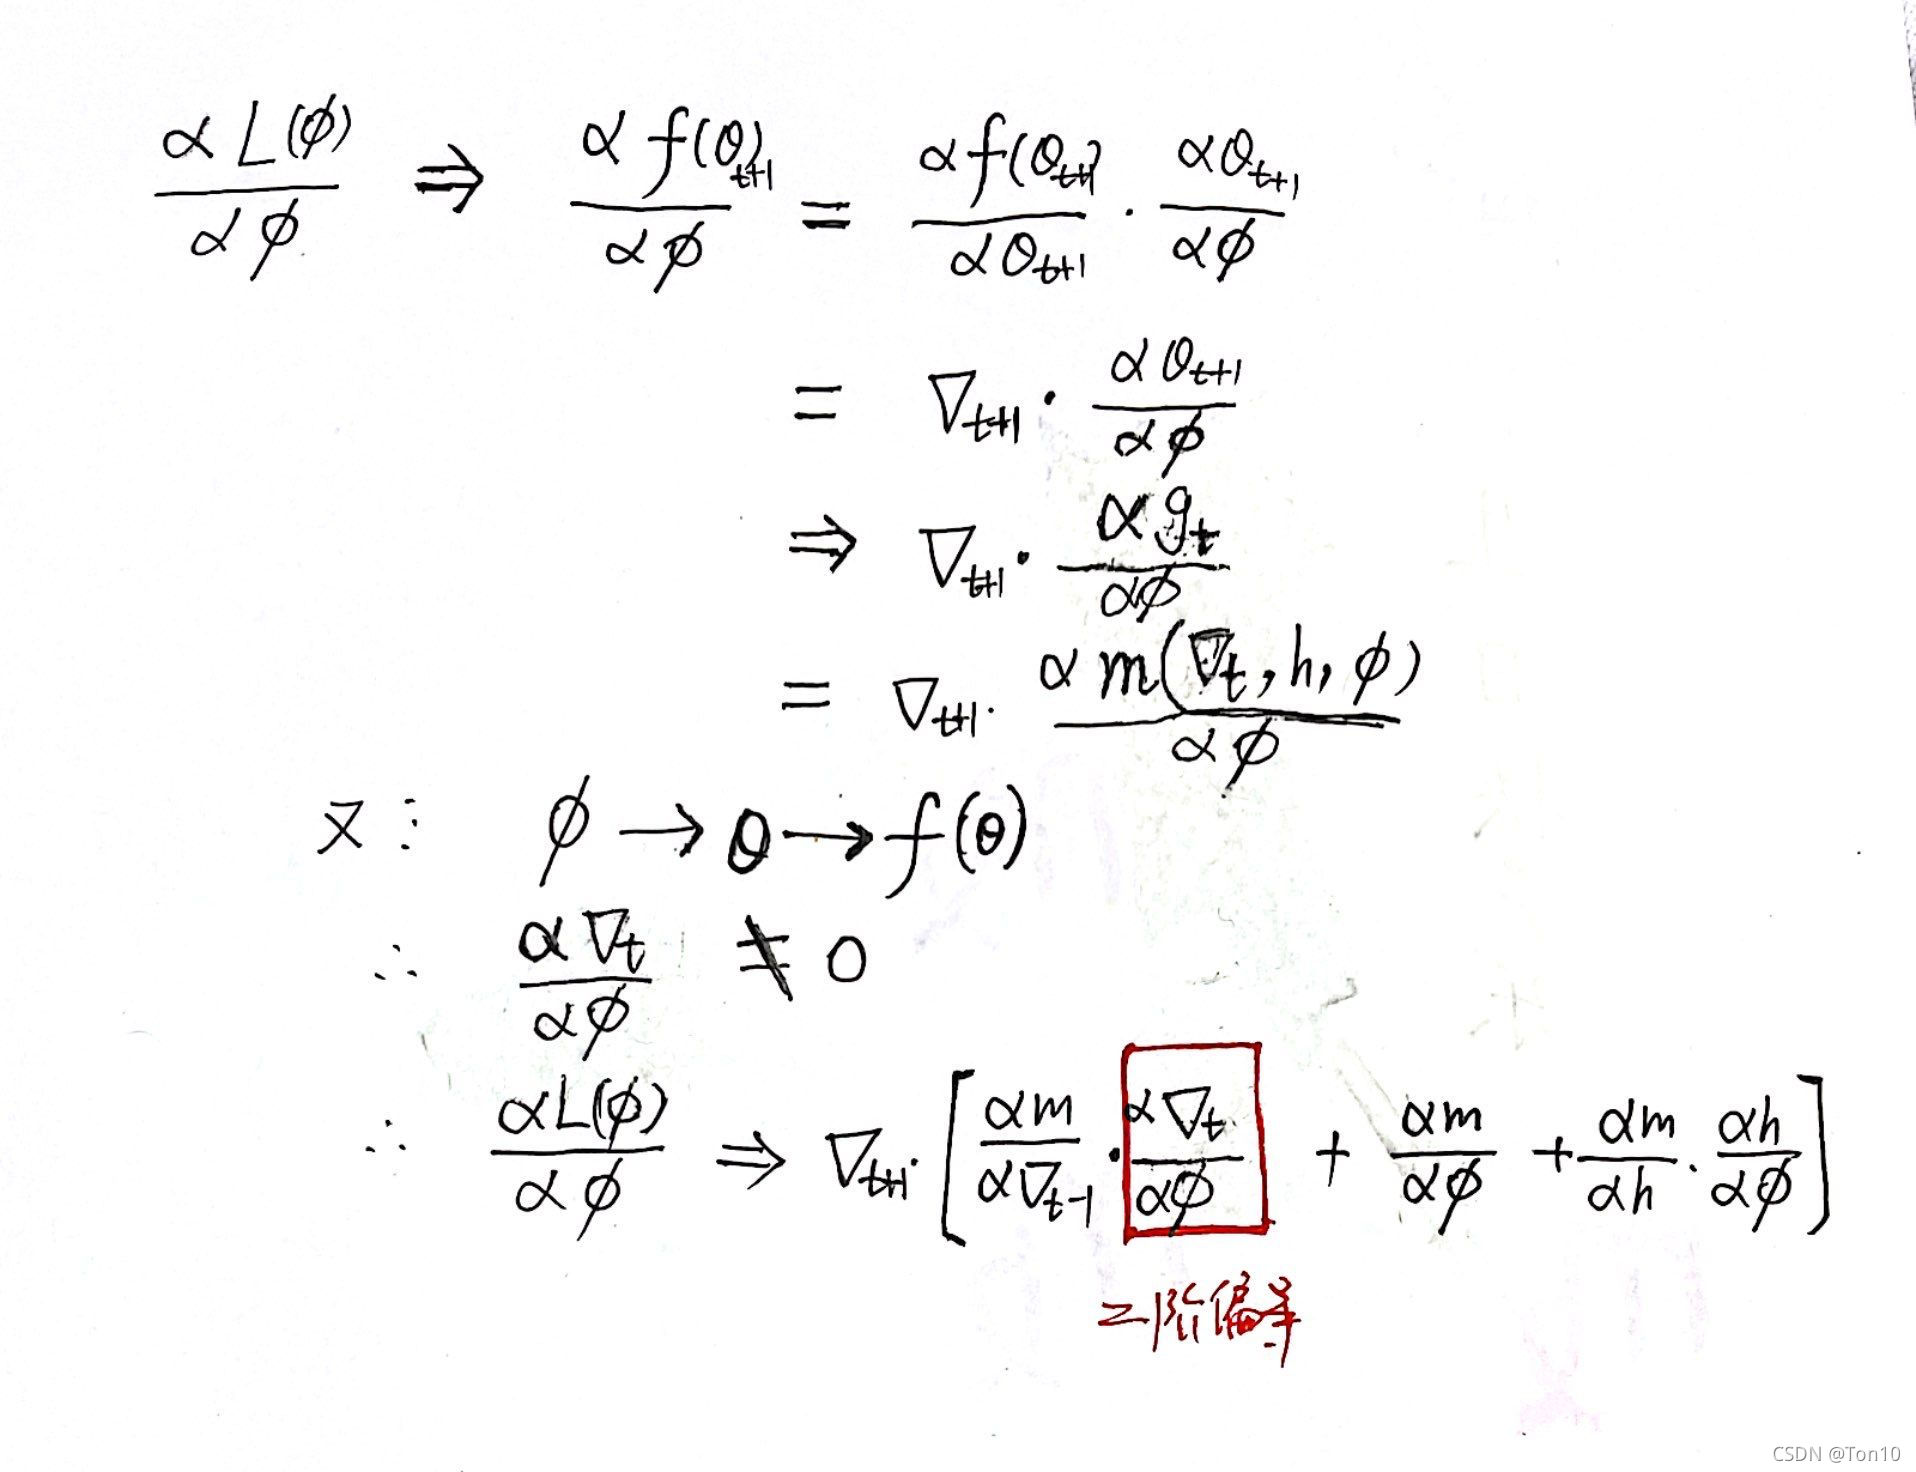 αL(φ)/αφ ⇒ αf(θ)t+1/αφ = αf(θt+1)/αθt+1 · αθt+1/αφ
= ∇t+1 · αθt+1/αφ
⇒ ∇t+1 · αgt/αφ
= ∇t+1 · αm(∇t, h, φ)/αφ
又∵ φ → θ → f(θ)
∴ α∇t/αφ ≠ 0
∴ αL(φ)/αφ ⇒ ∇t+1 · [αm/α∇t-1 · α∇t/αφ + αm/αφ + αm/αh · αh/αφ]
二阶偏导
CSDN @Ton10